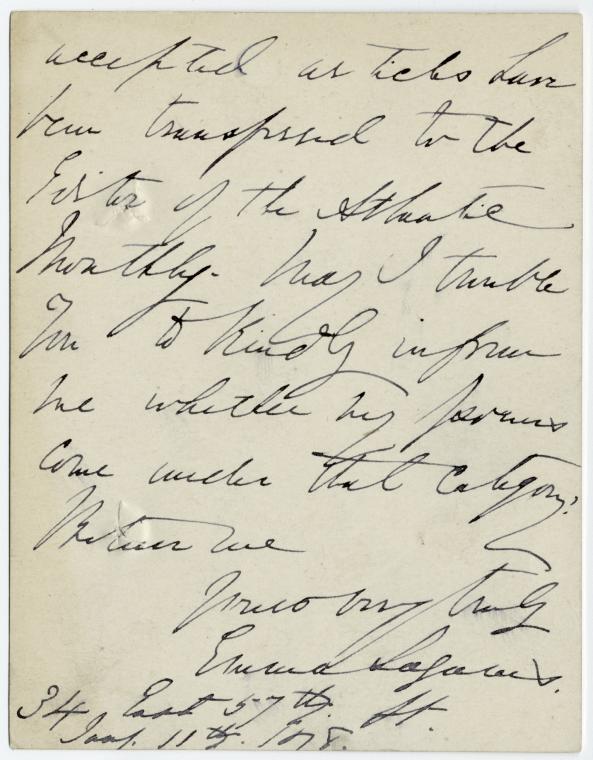 accepted articles have
been transferred to the
Editor of the Atlantic
Monthly. May I trouble
You to kindly inform
me whether my poems
come under that category?
Believe me
Yours very truly
Emma Lazarus.
34 East 57th St.
Jany. 11th. 1878.